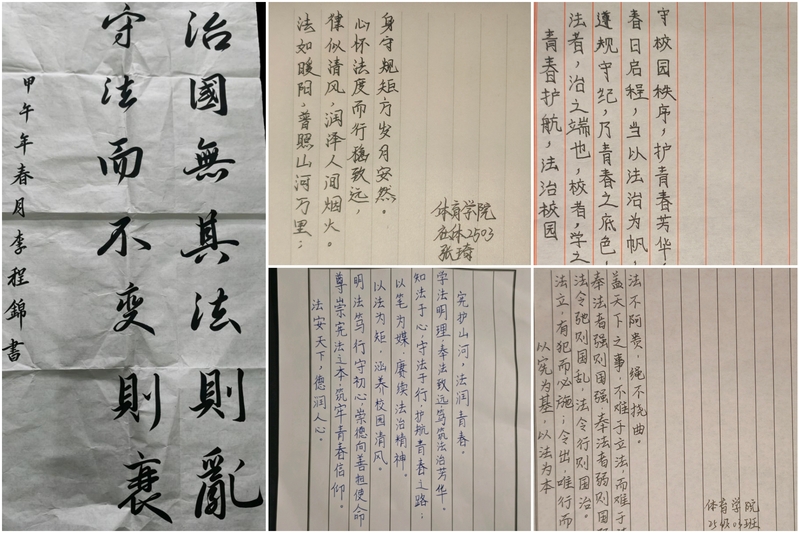 治國無其法則亂
守法而不变則衰
甲午年春月李程錦書
法如暖阳,普照山河万里;
律似清风,润泽人间烟火。
心怀法度而行稳致远,
身守规矩方岁月安然。
体育学院
社体2503
张琦
青春护航,法治校园
法者,治之端也,校者,学之
遵规守纪,乃青春之底色,
春日启程,当以法治为帆,
守校园秩序,护青春芳华,
法安天下,德润人心。
尊崇宪法之本,筑牢青春信仰。
明法笃行守初心,崇德向善担使命
以法为矩,涵养校园清风。
以笔为媒,赓续法治精神。
知法于心,守法于行,护航青春之路;
学法明理,奉法致远,笃筑法治芳华。
宪护山河,法润青春。
以宪为基,以法为本
法立,有犯而必施;令出,唯行而
法令弛则国乱,法令行则国治。
奉法者强则国强,奉法者弱则国
盖天下之事,不难于立法,而难于
法不阿贵,绳不挠曲。
体育学院
25级03班